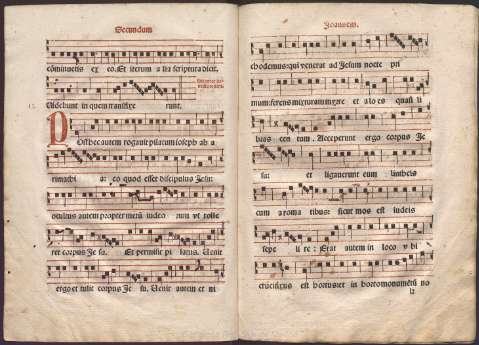 Secundum
cōminuetis ex eo. Et iterum a lia scriptura dicit.
Videbunt in quem transfixe runt.
Post hec autem rogauit pilatum ioseph ab a
rimathi a: eo quod esset discipulus Jesu:
occultus autem propter metū iudeo rum vt tolle
ret corpus Je su. Et permisit pi latus. Uenit
ergo et tulit corpus Je su. Uenit autem et ni
Joannem.
chodemus: qui venerat ad Jesum nocte pri
mum: ferens mixturam myrre et aloes quasi li
bras cen tum. Acceperunt ergo corpus Je
su: et ligauerunt eum lintheis
cum aroma tibus: sicut mos est iudeis
sepe li re: Erat autem in loco v bi
crucifixus est hortus: et in horto monumētū no